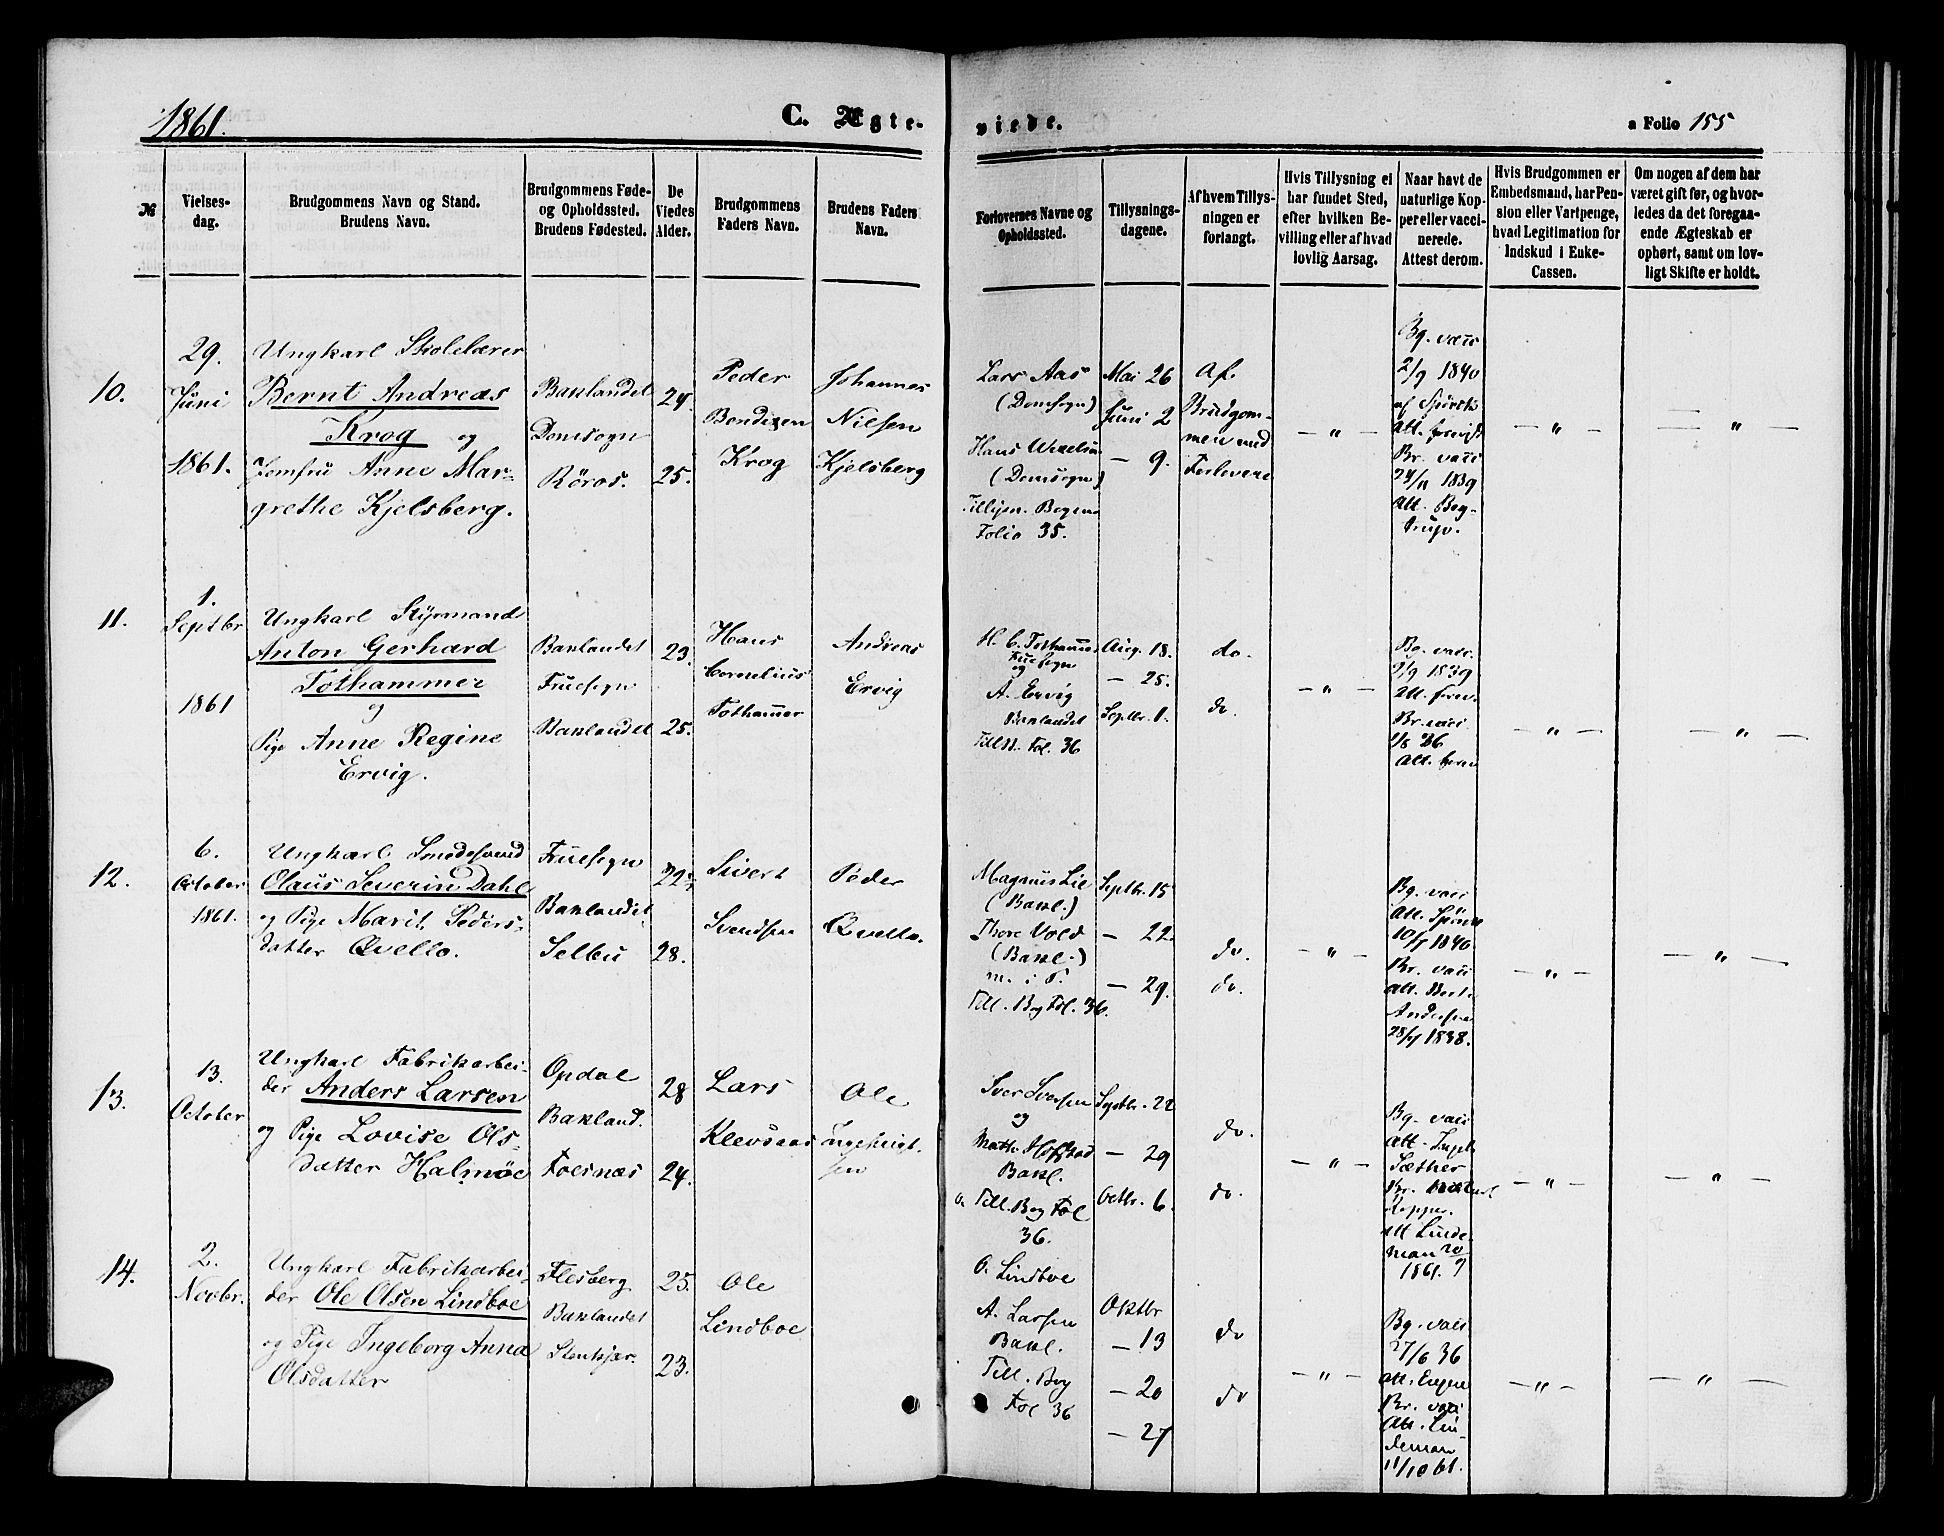 1861.
C. Ægte-
viede.
a Folio 155
№
Vielses-
dag.
Brudgommens Navn og Stand.
Brudens Navn.
Brudgommens Føde-
og Opholdssted.
Brudens Fødested.
De
Viedes
Alder.
Brudgommens
Faders Navn.
Brudens Faders
Navn.
Forlovernes Navne og
Opholdssted.
Tillysnings-
dagene.
Af hvem Tillys-
ningen er
forlangt.
Hvis Tillysning ei
har fundet Sted,
efter hvilken Be-
villing eller af hvad
lovlig Aarsag.
Naar havt de
naturlige Kop-
per eller vacci-
nerede.
Attest derom.
Hvis Brudgommen er
Embedsmand, har Pen-
sion eller Vartpenge,
hvad Legitimation for
Indskud i Enke-
Cassen.
Om nogen af dem har
været gift før, og hvor-
ledes da det foregaa-
ende Ægteskab er
ophørt, samt om lov-
ligt Skifte er holdt.
10.
29.
Juni
1861.
Ungkarl Skolelærer
Bernt Andreas
Krog og
Jomfru Anne Mar-
grethe Kjelsberg.
Baklandet
Domsogn
Röros.
24.
25.
Peder
Bendixen
Krog
Johannes
Nielsen
Kjelsberg
Lars Aas
(Domsogn)
Hans
(Domsogn)
Tillysn. Bogens
Folio 35.
Mai 26
Juni 2
— 9.
Af
Brudgom-
men med
Forlovere
— „ —
Bg. vacc
2/9 1840
af
Att. forevist
Br. vacc
24/11 1839
Att. Bog-
trup.
— „ —
— „ —
11.
1.
Septbr
1861
Ungkarl Styrmand
Anton Gerhard
Tothammer
og
Pige Anne Regine
Ervig.
Baklandet
Fruesogn
Baklandet
23.
25.
Hans
Cornelius
Tothammer
Andreas
Ervig
H. C. Tothammer
Fruesogn
og
A. Ervig
Baklandet
Till. Fol. 36
Aug. 18.
— 25.
Septbr. 1.
do.
do.
— „ —
Bg. vacc.
2/9 1839
Att. forev.
Br. vacc
1/8 36
Att. forev
— „ —
— „ —
12.
6.
October
1861.
Ungkarl Smedesvend
Olaus Severin Dahl
og Pige Marit Peders-
datter Qvello.
Fruesogn
Baklandet
Selbu
22
28.
Sivert
Svendsen
Peder
Qvello.
Magnus Lie
(Bakl.)
Thore Vold
(Bakl.)
m. i P.
Till. Bog Fol. 36.
Septbr. 15
— 22.
— 29.
do.
do.
— „ —
Bg. vacc
Att.
10/7 1840.
Br. vacc
Att.
Andersen
28/7 1838.
— „ —
— „ —
13.
13.
October
Ungkarl Fabrikarbei-
der Anders Larsen
og Pige Lovise Ols-
datter Halmøe
Opdal
Bakland.
Foesnæs
28
24.
Lars
Klevsaas
Ole
Ingebrigt-
sen
Iver Iversen
og
Math. Hofstad
Bakl.
Till. Bog Fol
36.
Septbr. 22
— 29
Octbr. 6.
do.
do.
— „ —
Bg. vacc
Att.
Sæther
Br.
Kopper.
Att Linde-
man 20/9
1861.
— „ —
— „ —
14.
2.
Novbr.
Ungkarl Fabrikarbei-
der Ole Olsen Lindboe
og Pige Ingeborg Anna
Olsdatter
Flesberg
Baklandet
Stenkjær.
25.
23.
Ole
Lindboe
O. Lindboe
A. Larsen
Bakl.
Till. Bog
Fol 36
Oktbr
— 13
— 20
— 27
do
do
— „ —
Bg. vacc
27/6 36
Att.
Br. vacc
Att. Lin-
deman
11/10 61.
— „ —
— „ —